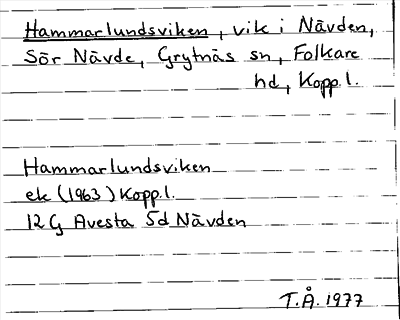 Hammarlundsviken, vik i Nävden,
Sör Nävde, Grytnäs sn, Folkare
hd, Kopp.l.
Hammarlundsviken
ek (1963) Kopp.l.
12 G Avesta 5d Nävden
T.Å. 1977